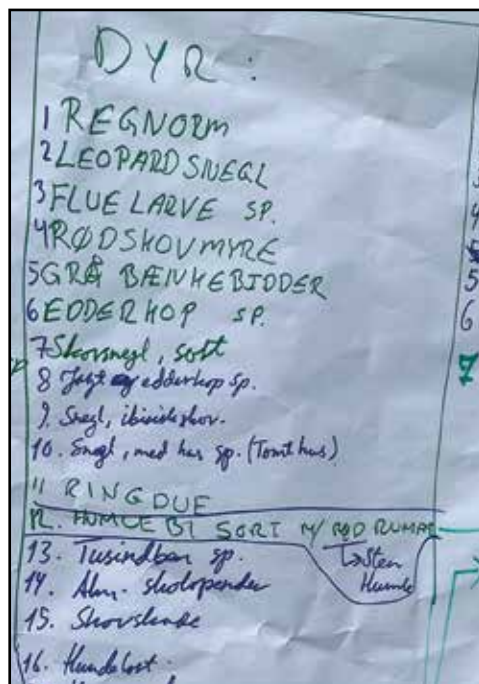 DYR:
1 REGNORM
2 LEOPARDSNEGL
3 FLUELARVE SP.
4 RØD SKOVMYRE
5 GRÅ BÆNKEBIDDER
6 EDDERKOP SP.
7 Skovsnegl, sort
8 Jagt edderkop sp.
9. Snegl, iberisk skov.
10. Snegl, med hus sp. (Tomt hus)
11 RINGDUE
12. HUMLEBI SORT M/ RØD RUMPE
13. Tusindben sp.
Humle
14. Alm. skolopender
15. Skovskade
16.
4
5
5
6
7